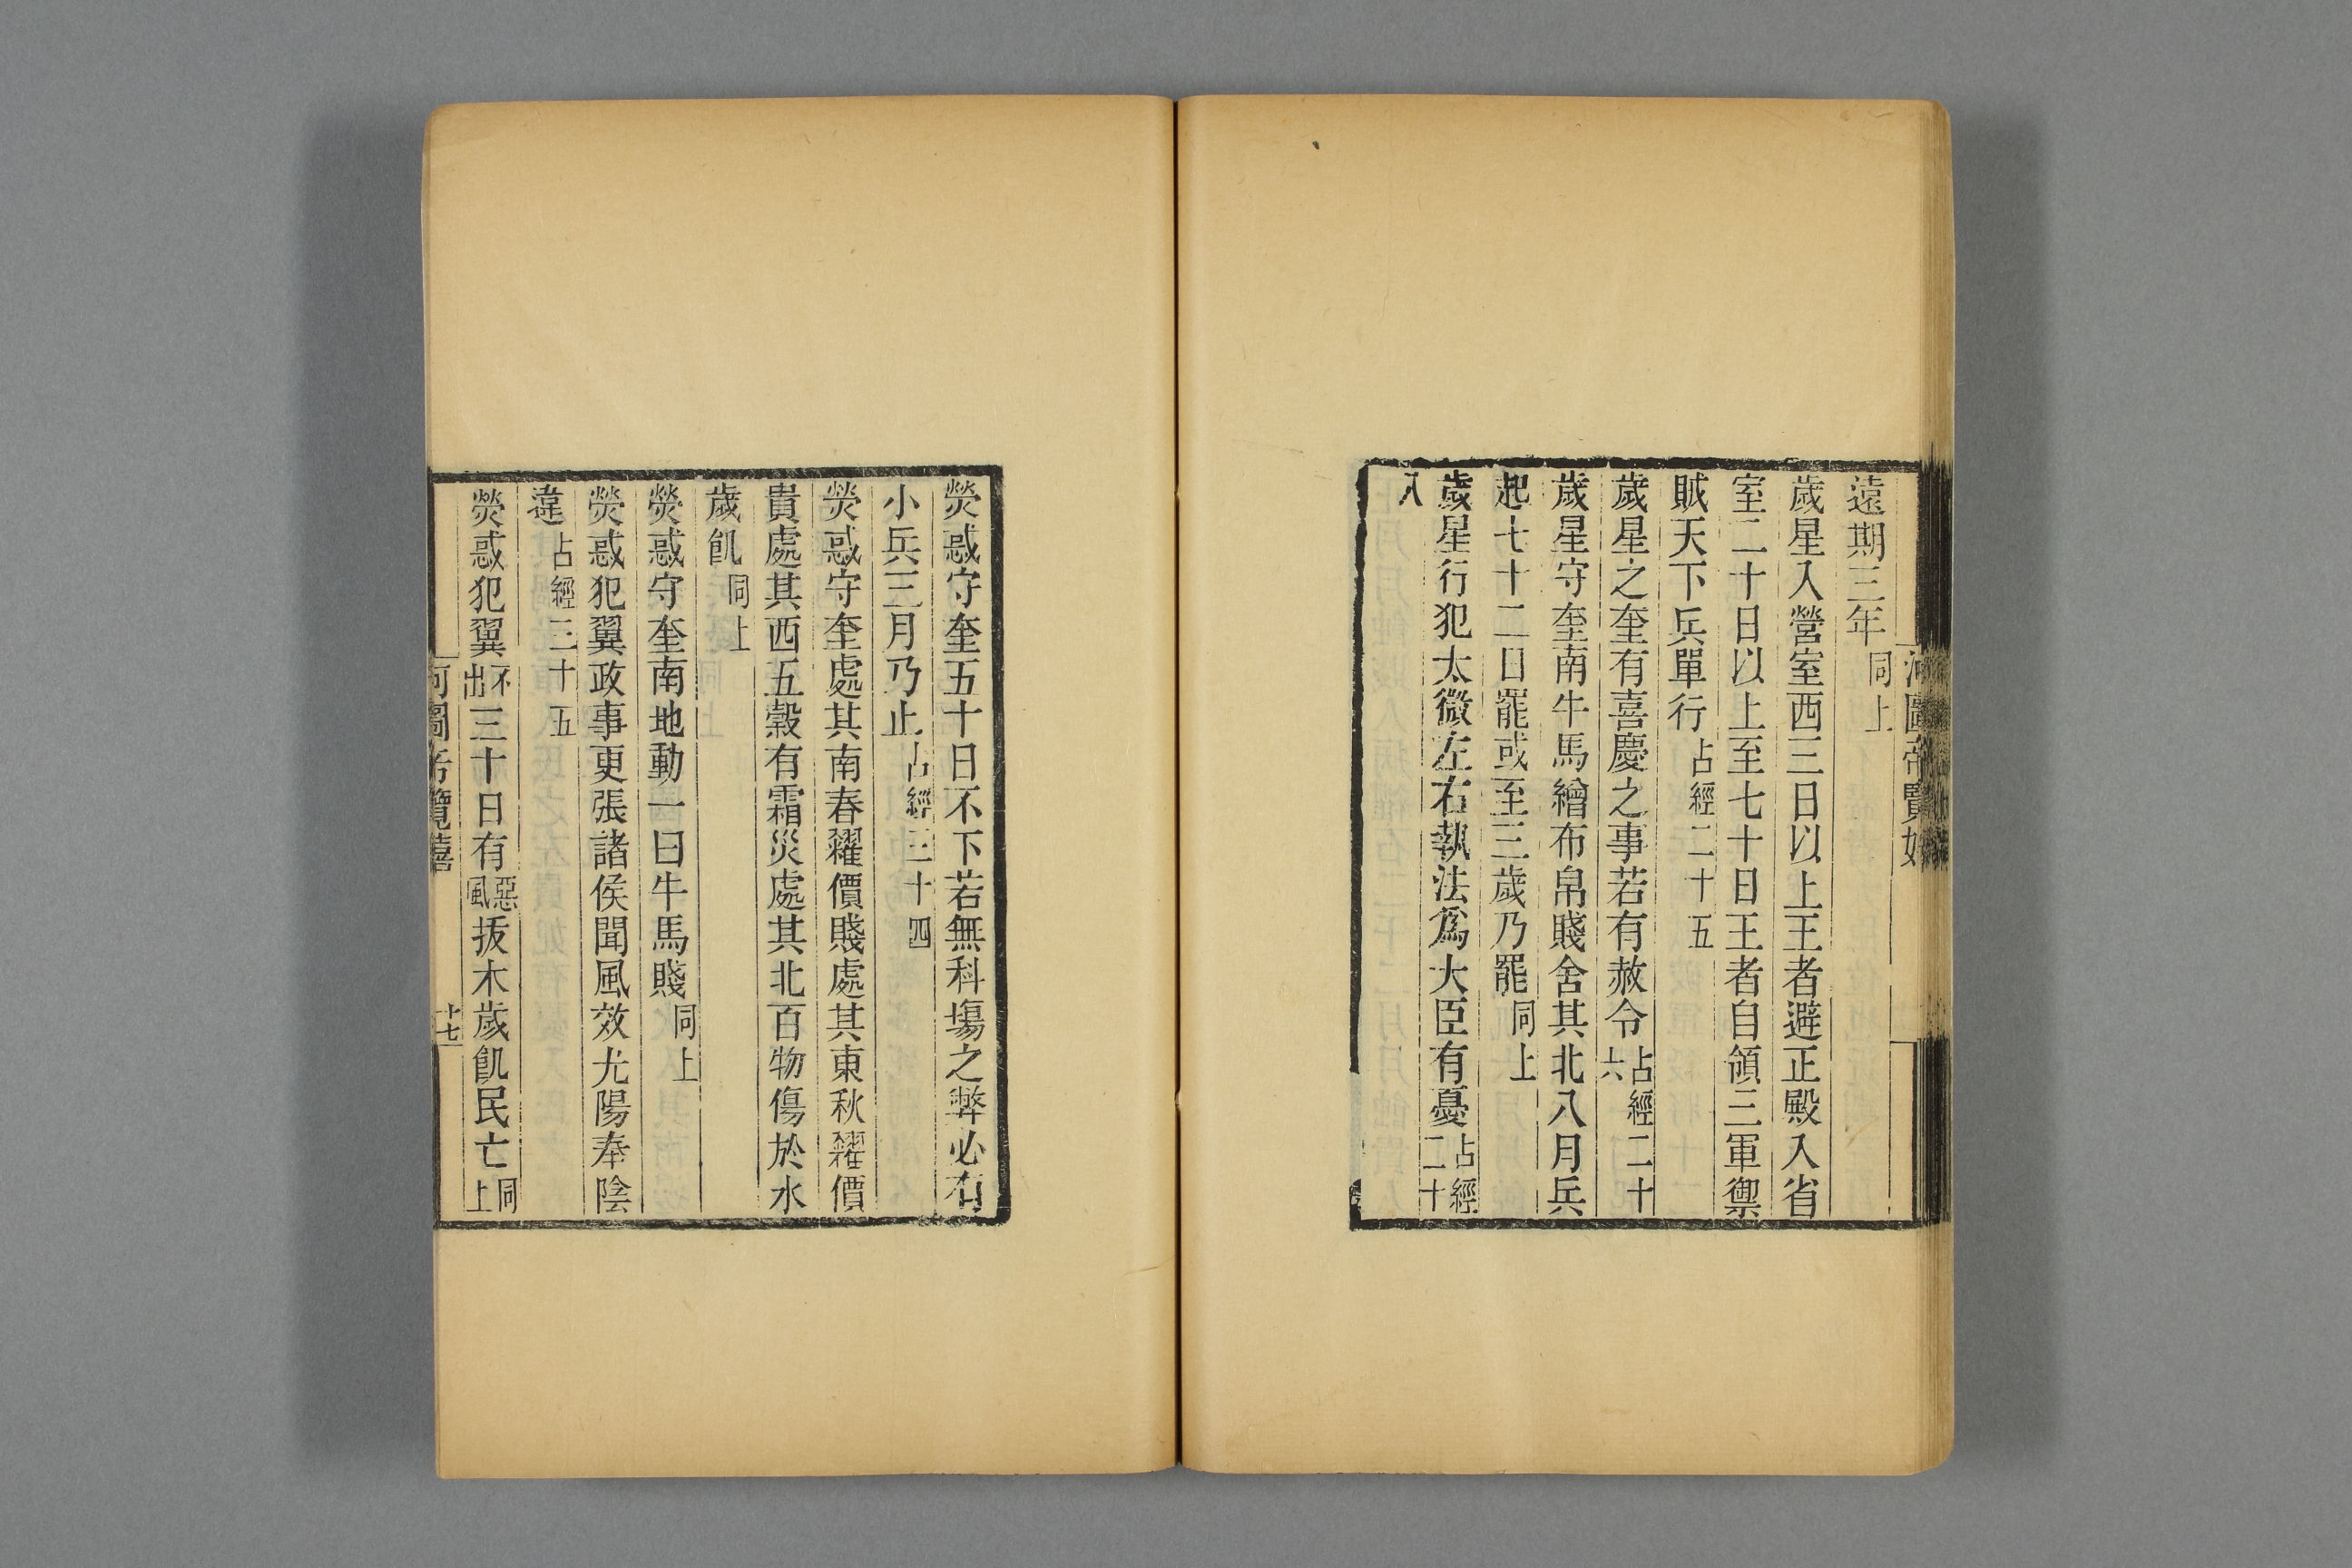 遠期三年同上
歲星入營室西三日以上王者避正殿入省
室二十日以上至七十日王者自領三軍禦
賊天下兵單行占經二十五
歲星之奎有喜慶之事若有赦令占經二十六
歲星守奎南牛馬繒布帛賤舍其北八月兵
起七十二日罷或至三歲乃罷同上
歲星行犯太微左右執法爲大臣有憂占經二十
八
熒惑守奎五十日不下若無科塲之弊必有
小兵三月乃止占經三十四
熒惑守奎處其南春糴價賤處其東秋糴價
貴處其西五穀有霜災處其北百物傷於水
歲飢同上
熒惑守奎南地動一曰牛馬賤同上
熒惑犯翼政事更張諸侯聞風效尤陽奉陰
違占經三十五
熒惑犯翼不出三十日有惡風拔木歲飢民亡同上
十七